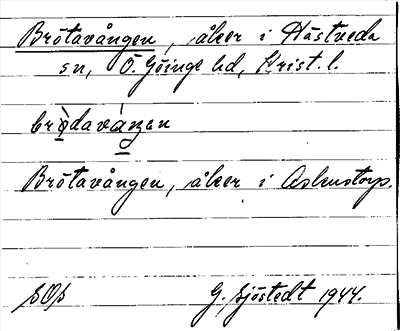 Brötavången, åker i Hästveda
sn, Ö. Göinge hd, Krist. l.
bròdaváŋen
Brötavången, åker i Askenstorp.
SOS
G. Sjöstedt 1944.